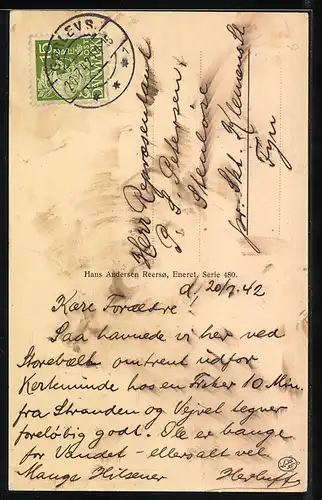 EEVS.
15
DANMARK
POST
Herr Repræsentant
P. S. Petersen
Stenløse
pr. Skt. Klemens St.
Fyn
Hans Andersen Reersø, Eneret. Serie 480.
d, 20/7. 42
Kære Forældre!
Saa havnede vi her ved
Storebælt omtrent udfor
Kerteminde hos en Fisker 10 Min.
fra Stranden og Vejret tegner
foreløbig godt. Ole er bange
for Vandet – ellers alt vel.
Mange Hilsener Herluf